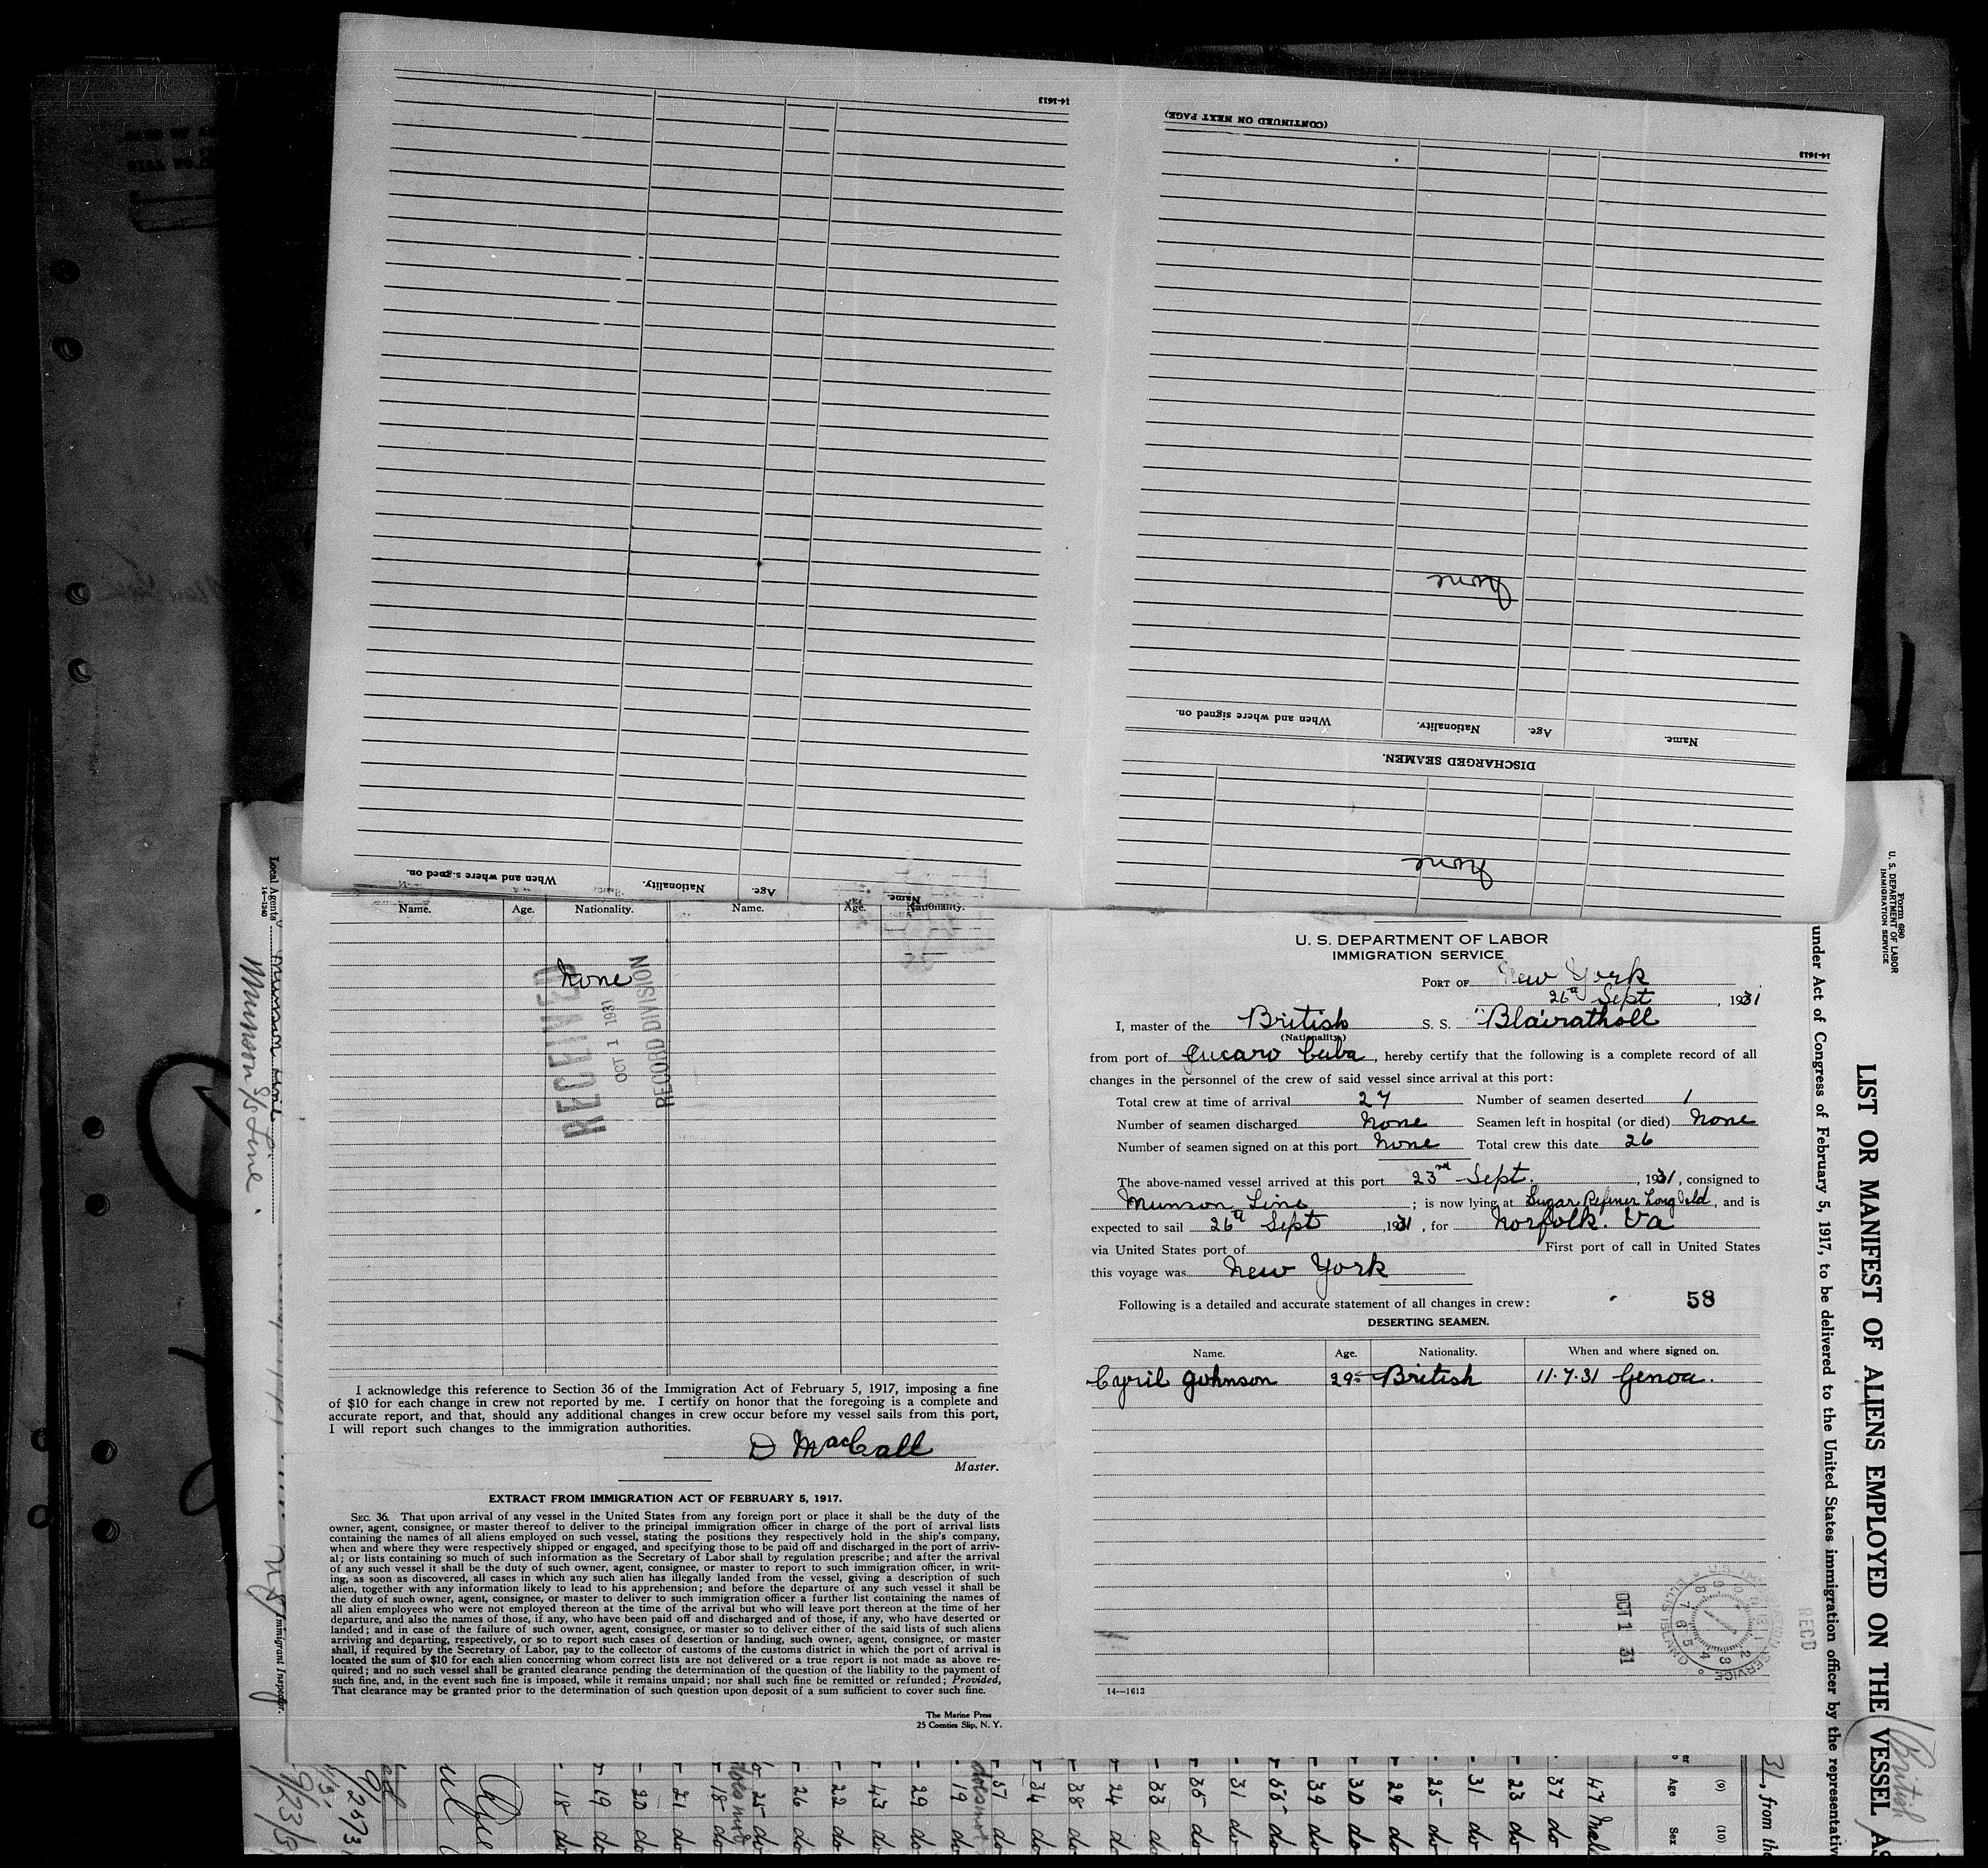 14-1613
(CONTINUED ON NEXT PAGE)
14-1613
None
When and where signed on.
Nationality.
Age.
Name.
DISCHARGED SEAMEN.
None
When and where signed on.
Nationality.
Age.
Name.
Name. Age. Nationality. Name. Age. Nationality.
None
RECEIVED
OCT 1 1931
RECORD DIVISION
I acknowledge this reference to Section 36 of the Immigration Act of February 5, 1917, imposing a fine
of $10 for each change in crew not reported by me. I certify on honor that the foregoing is a complete and
accurate report, and that, should any additional changes in crew occur before my vessel sails from this port,
I will report such changes to the immigration authorities.
D MacCall
Master.
EXTRACT FROM IMMIGRATION ACT OF FEBRUARY 5, 1917.
SEC. 36. That upon arrival of any vessel in the United States from any foreign port or place it shall be the duty of the
owner, agent, consignee, or master thereof to deliver to the principal immigration officer in charge of the port of arrival lists
containing the names of all aliens employed on such vessel, stating the positions they respectively hold in the ship's company,
when and where they were respectively shipped or engaged, and specifying those to be paid off and discharged in the port of arriv-
al; or lists containing so much of such information as the Secretary of Labor shall by regulation prescribe; and after the arrival
of any such vessel it shall be the duty of such owner, agent, consignee, or master to report to such immigration officer, in writ-
ing, as soon as discovered, all cases in which any such alien has illegally landed from the vessel, giving a description of such
alien, together with any information likely to lead to his apprehension; and before the departure of any such vessel it shall be
the duty of such owner, agent, consignee, or master to deliver to such immigration officer a further list containing the names of
all alien employees who were not employed thereon at the time of the arrival but who will leave port thereon at the time of her
departure, and also the names of those, if any, who have been paid off and discharged and of those, if any, who have deserted or
landed; and in case of the failure of such owner, agent, consignee, or master so to deliver either of the said lists of such aliens
arriving and departing, respectively, or so to report such cases of desertion or landing, such owner, agent, consignee, or master
shall, if required by the Secretary of Labor, pay to the collector of customs of the customs district in which the port of arrival is
located the sum of $10 for each alien concerning whom correct lists are not delivered or a true report is not made as above re-
quired; and no such vessel shall be granted clearance pending the determination of the question of the liability to the payment of
such fine, and, in the event such fine is imposed, while it remains unpaid; nor shall such fine be remitted or refunded; Provided,
That clearance may be granted prior to the determination of such question upon deposit of a sum sufficient to cover such fine.
The Marine Press
25 Coenties Slip, N. Y.
U. S. DEPARTMENT OF LABOR
IMMIGRATION SERVICE
PORT OF New York
26th Sept, 1931
I, master of the British S. S. "Blairatholl
(Nationality)
from port of Jucaro Cuba, hereby certify that the following is a complete record of all
changes in the personnel of the crew of said vessel since arrival at this port:
Total crew at time of arrival 27 Number of seamen deserted 1
Number of seamen discharged None Seamen left in hospital (or died) None
Number of seamen signed on at this port None Total crew this date 26
The above-named vessel arrived at this port 23rd Sept., 1931, consigned to
Munson Line; is now lying at Sugar Refiner Long Isld, and is
expected to sail 26th Sept, 1931, for Norfolk. Va
via United States port of First port of call in United States
this voyage was New York
Following is a detailed and accurate statement of all changes in crew:
58
DESERTING SEAMEN.
Name. Age. Nationality. When and where signed on.
Cyril Johnson 29 British 11.7.31 Genoa.
OCT 1 31
RECD
14—1613
Local Agents Munson Line
14-1240
Munson S/S Line.
Immigrant Inspector.
Form 680
U. S. DEPARTMENT OF LABOR
IMMIGRATION SERVICE
LIST OR MANIFEST OF ALIENS EMPLOYED ON THE VESSEL AS
under Act of Congress of February 5, 1917, to be delivered to the United States immigration officer by the representativ
(British)
31, from the
(9) (10)
Age Sex
47 Male
37 do
23 do
31 do
25 do
29 do
30 do
39 do
56 do
31 do
35 do
33 do
24 do
38 do
34 do
57 do
19 do
29 do
43 do
22 do
26 do
25 do
18 do
21 do
20 do
19 do
18 do
9/23/31